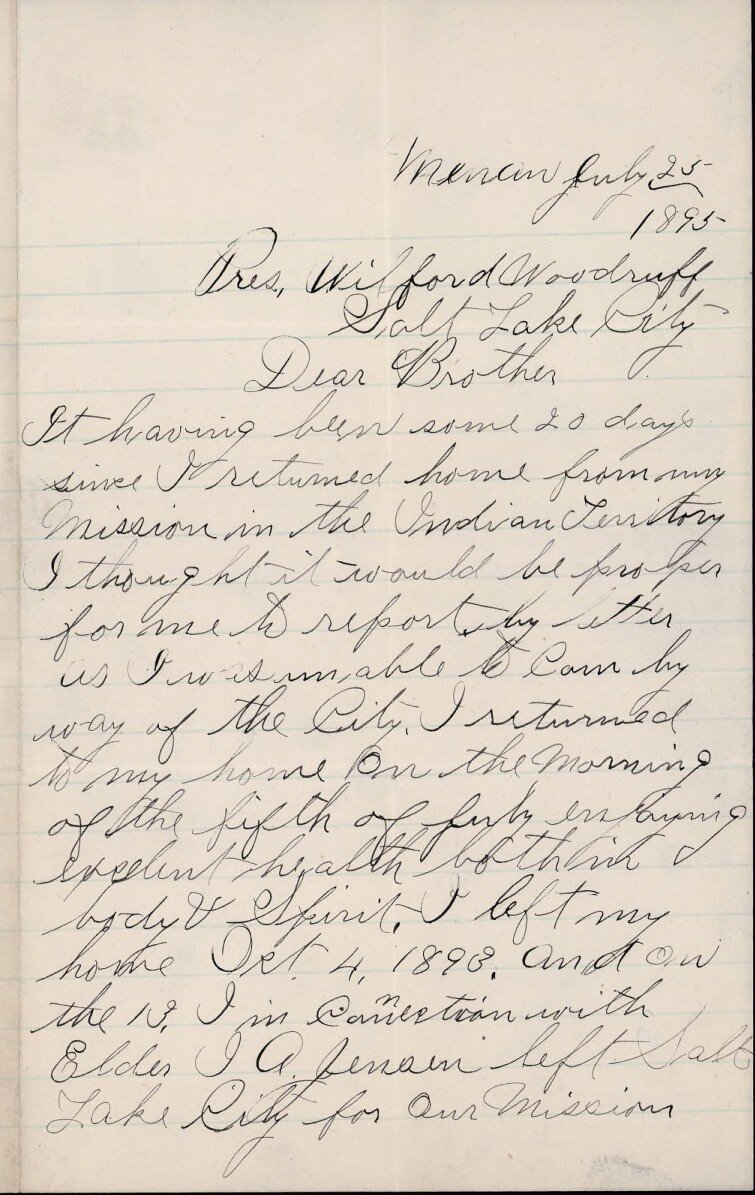 Menan July 25
1895
Pres, Wilford Woodruff
Salt Lake City
Dear Brother
It having been some 20 days
since I returned home from my
Mission in the Indian Territory
I thought it would be proper
for me to report, by letter
as I was unable to Com by
way of the City. I returned
to my home On the Morning
of the fifth of July enjoying
exelent health both in
body & Spirit, I left my
home Oct. 4, 1893. and on
the 13, I in Connection with
Elder I A. Jensen left Salt
Lake City for Our Mission